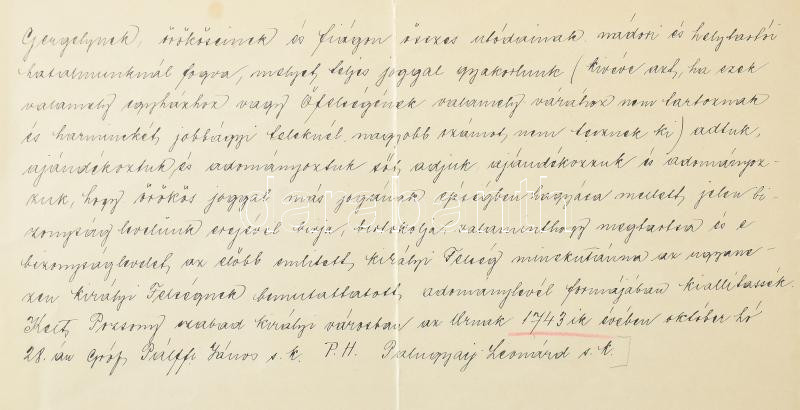 Gergelynek, örököseinek és fiágon összes utódainak nádori és helytartói
hatalmunknál fogva, melyet teljes joggal gyakorlunk (kivéve azt, ha ezek
valamely egyházhoz vagy Őfelségének valamely várához nem tartoznak
és harmincket jobbágyi teleknél nagyobb számot, nem tesznek ki) adtuk,
ajándékoztuk és adományoztuk sőt, adjuk, ajándékozzuk és adományoz-
zuk, hogy örökös joggal más jogának épségben hagyása mellett, jelen bi-
zonyság levelünk erejével birja, birtokolja, valaminthogy megtartsa és e
bizonyságlevelet, az előbb említett királyi Felség minekutánna az ugyane-
zen királyi Felségnek bemutattatott, adománylevél formájában kiállítassék.
Kelt, Pozsony szabad királyi városban az Úrnak 1743 ik évében október hó
28. án Gróf Pálffi János s. k. P. H. Palugyaij Leonárd s. k.
darabanth